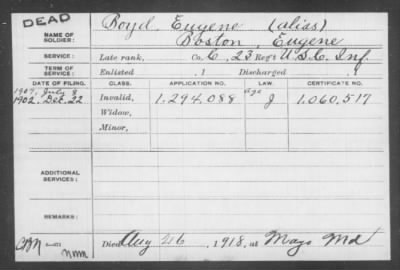 DEAD
NAME OF SOLDIER: Boyd, Eugene (alias)
Boston, Eugene
SERVICE: Late rank, Co. C, 23 Reg't U.S.C. Inf.
TERM OF SERVICE: Enlisted , 1 Discharged , 1
DATE OF FILING. CLASS. APPLICATION NO. LAW. CERTIFICATE NO.
1907, July 8 Age
1902, Dec. 22 Invalid, 1.294.088 J 1.060.517
Widow,
Minor,
ADDITIONAL SERVICES:
REMARKS:
Died Aug 26, 1918, at Mayo Md